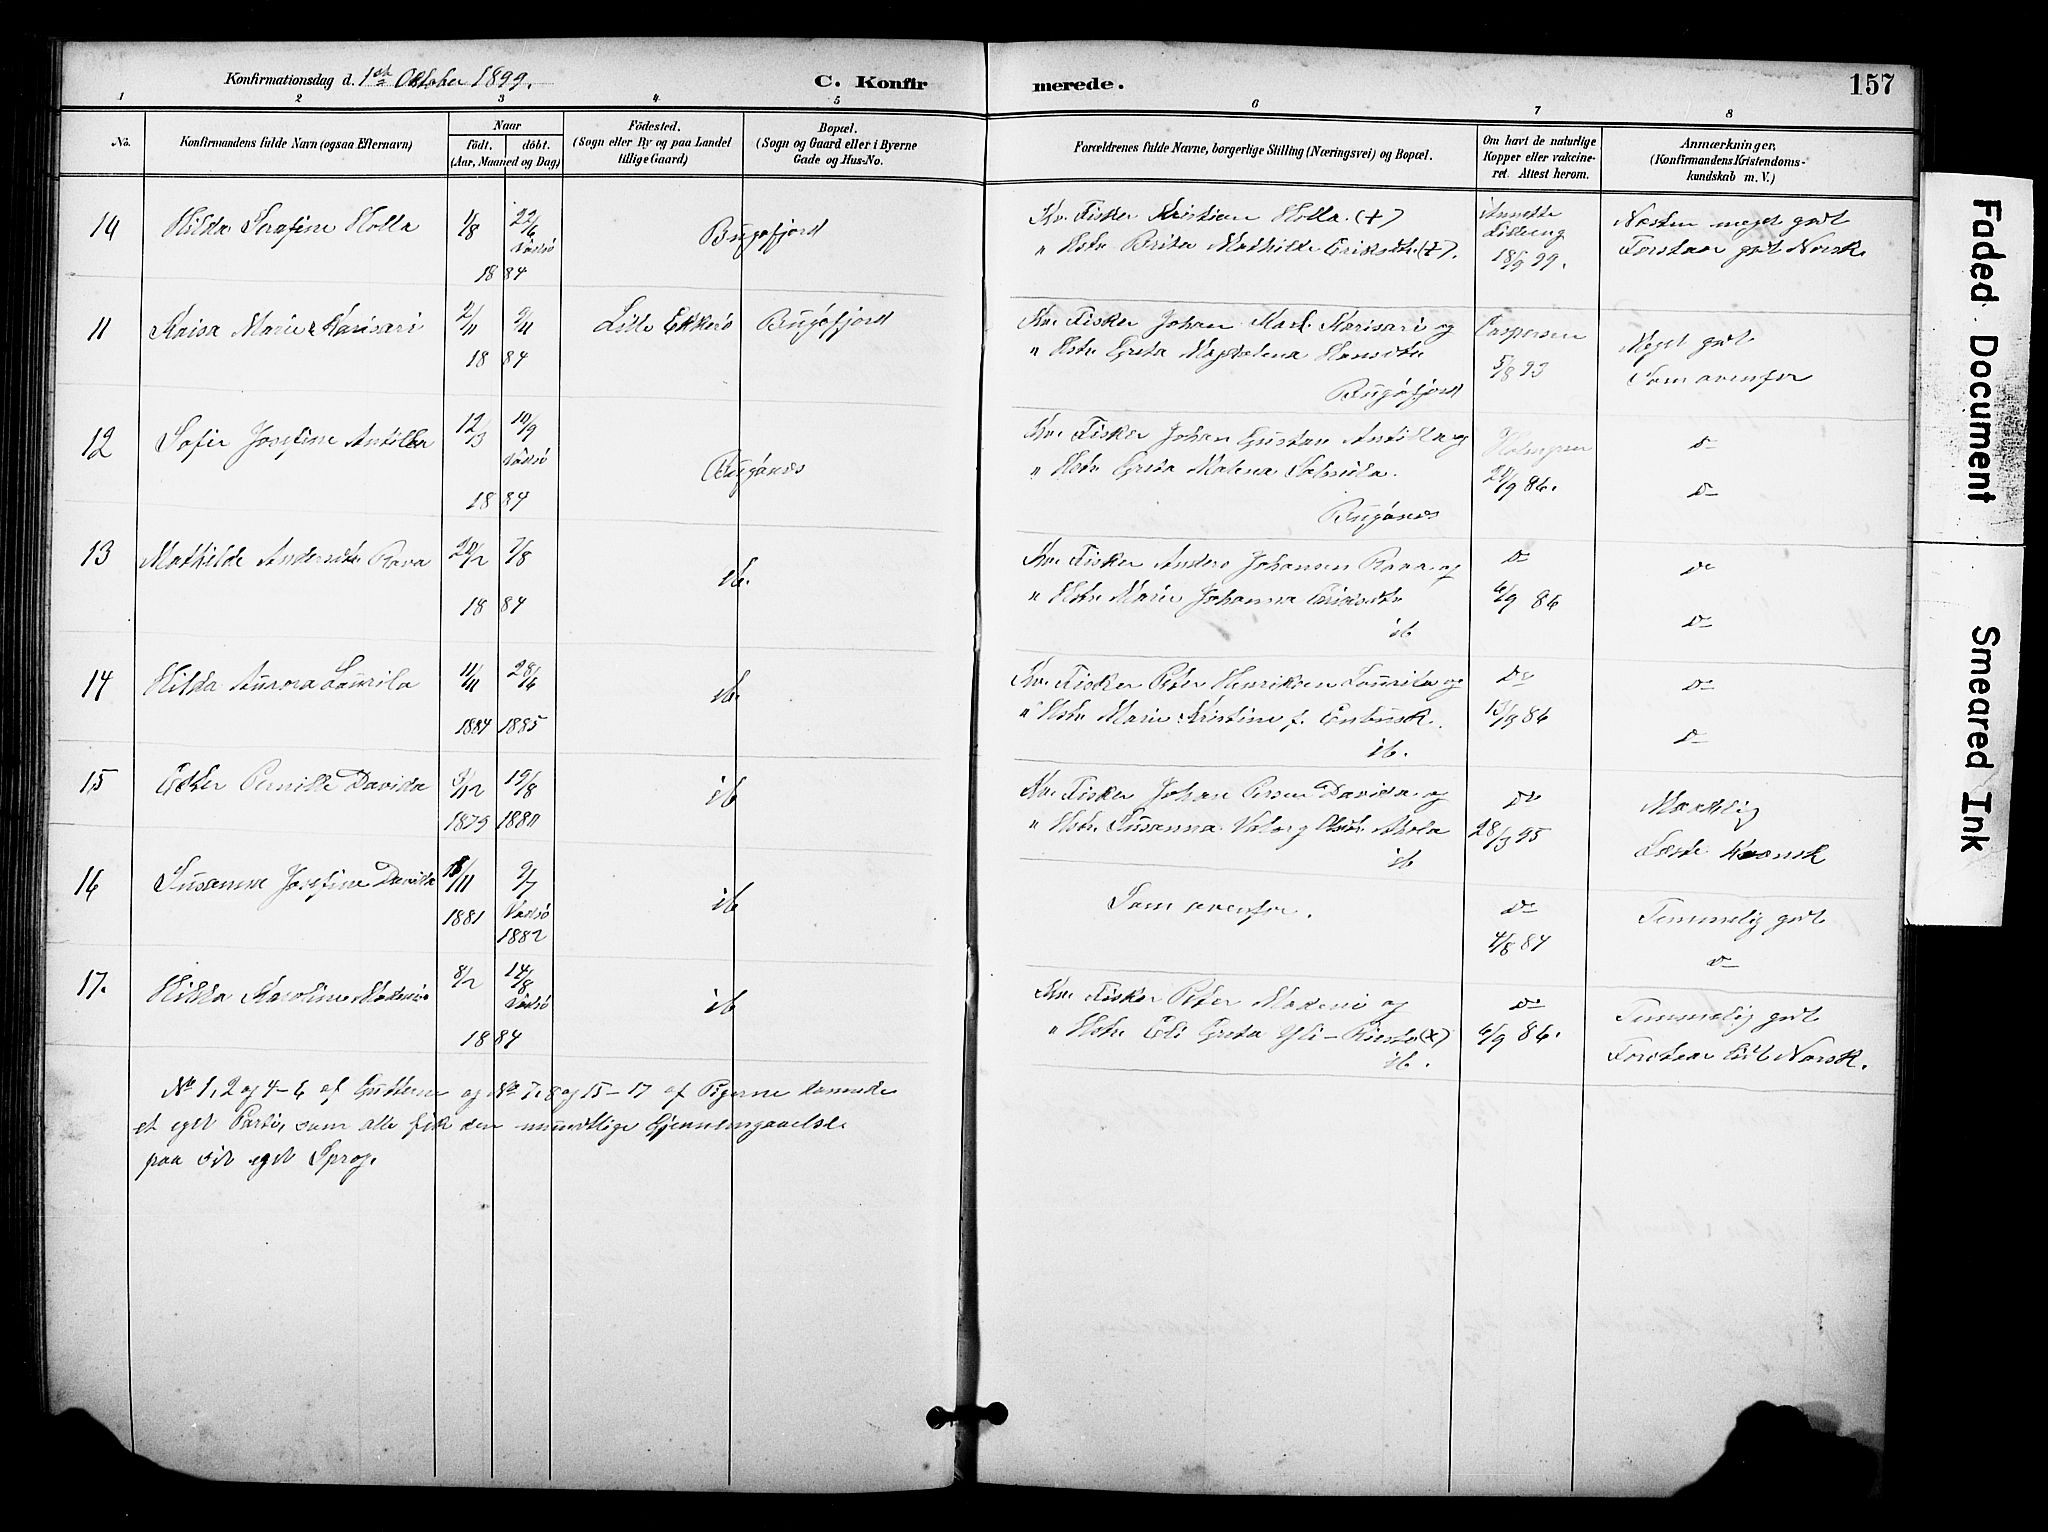 Konfirmationsdag d. 1ste Oktober 1899. C. Konfirmerede. 157
1 2 3 4 5 6 7 8
No. Konfirmandens fulde Navn (ogsaa Efternavn) Naar födt. döbt. (Aar, Maaned og Dag) Födested. (Sogn eller By og paa Landet tillige Gaard) Bopæl. (Sogn og Gaard eller i Byerne Gade og Hus-No. Forældrenes fulde Navne, borgerlige Stilling (Næringsvei) og Bopæl. Om havt de naturlige Kopper eller vakcineret. Attest herom. Anmærkninger, (Konfirmandens Kristendomskundskab m. V.)
Hilda Serafine Holla 1/8 22/6 Vadsö 1884 Bugöfjord Kv. Fisker Kristian Holla (+)
" Hstr Brita Mathilde Eriksdtr (+). 18/9 99. Næsten meget godt
Forstaar godt Norsk
11 Kaisa Marie Karivari 2/11 9/11 1884 Lille Ekkerö Bugöfjord Kv. Fisker Johan Karivari og
" Hstr Greta Magdalena Hansdtr
Bugöfjord Caspersen 5/8 93 Meget godt
Som ovenfor
12 Sofie Josefine Anttila 12/3 10/9 Vadsö 1884 Bugönes Kv. Fisker Johan Gustav Anttila og
" Hstr Greta Malena
Bugönes Holmgren 21/9 86. Do
Do
13 Mathilde Andersdtr Rava 20/2 7/8 1884 ib. Kv. Fisker Anders Johansen Rava og
" Hstr Marie Johanna
ib Do 6/9 86 Do
Do
14 Hilda Aurora Laurila 11/11 1884 28/6 1885 ib. Kv. Fisker Peter Henriksen Laurila og
" Hstr Marie Kristine f. Enbusk.
ib. Do 13/9 86 Do
Do
15 Ester Pernille Davida 3/12 1879 19/8 1880 ib Kv. Fisker Johan Persen Davida og
" Hstr Susanna Valborg
ib Do 28/3 95 Maadelig
Læste Kvænsk
16 Susanna Josefine Davida 18/11 1881 9/7 Vadsö 1882 ib Som ovenfor. Do 4/8 84 Temmelig godt
Do
17. Hilda Karoline Madeni 8/2 14/8 Vadsö 1884 ib Kv. Fisker Peter Madeni og
" Hstr Eli Greta Yli-Kiesta (x)
ib. Do 6/9 86. Temmelig godt
Forstaar lidt Norsk.
No 1, 2 og 4-6 af Gutterne og No 7, 8 og 15-17 af Pigerne dannede
et eget Parti, som alle fik den mundtlige Gjennemgaaelse
paa sit eget Sprog.
Faded Document
Smeared Ink